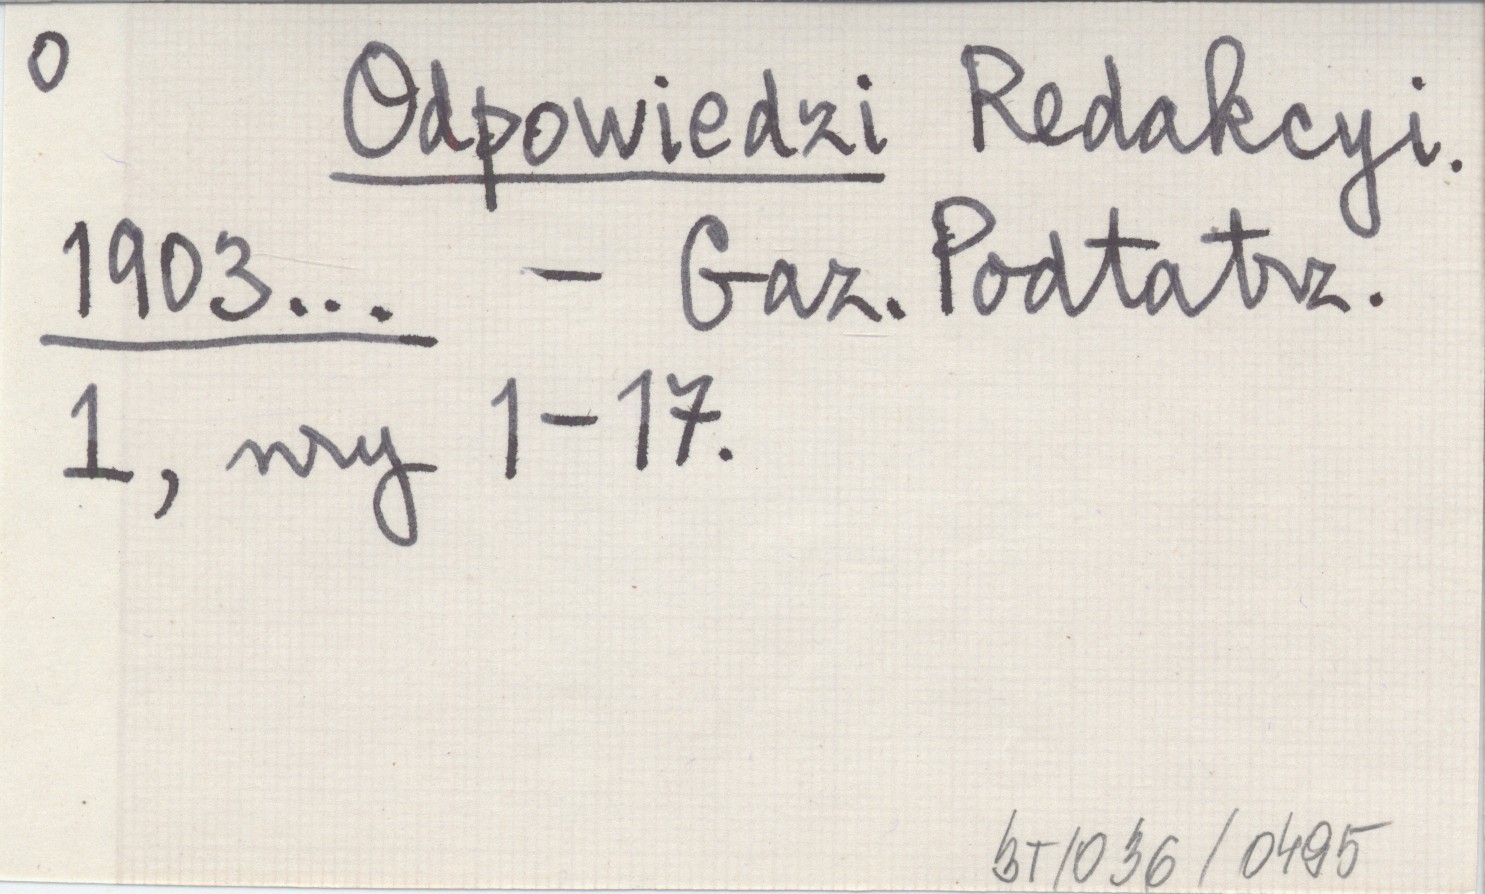 O
Odpowiedzi Redakcyi.
1903... - Gaz. Podtatrz.
1, nry 1-17.
BT/036/0495